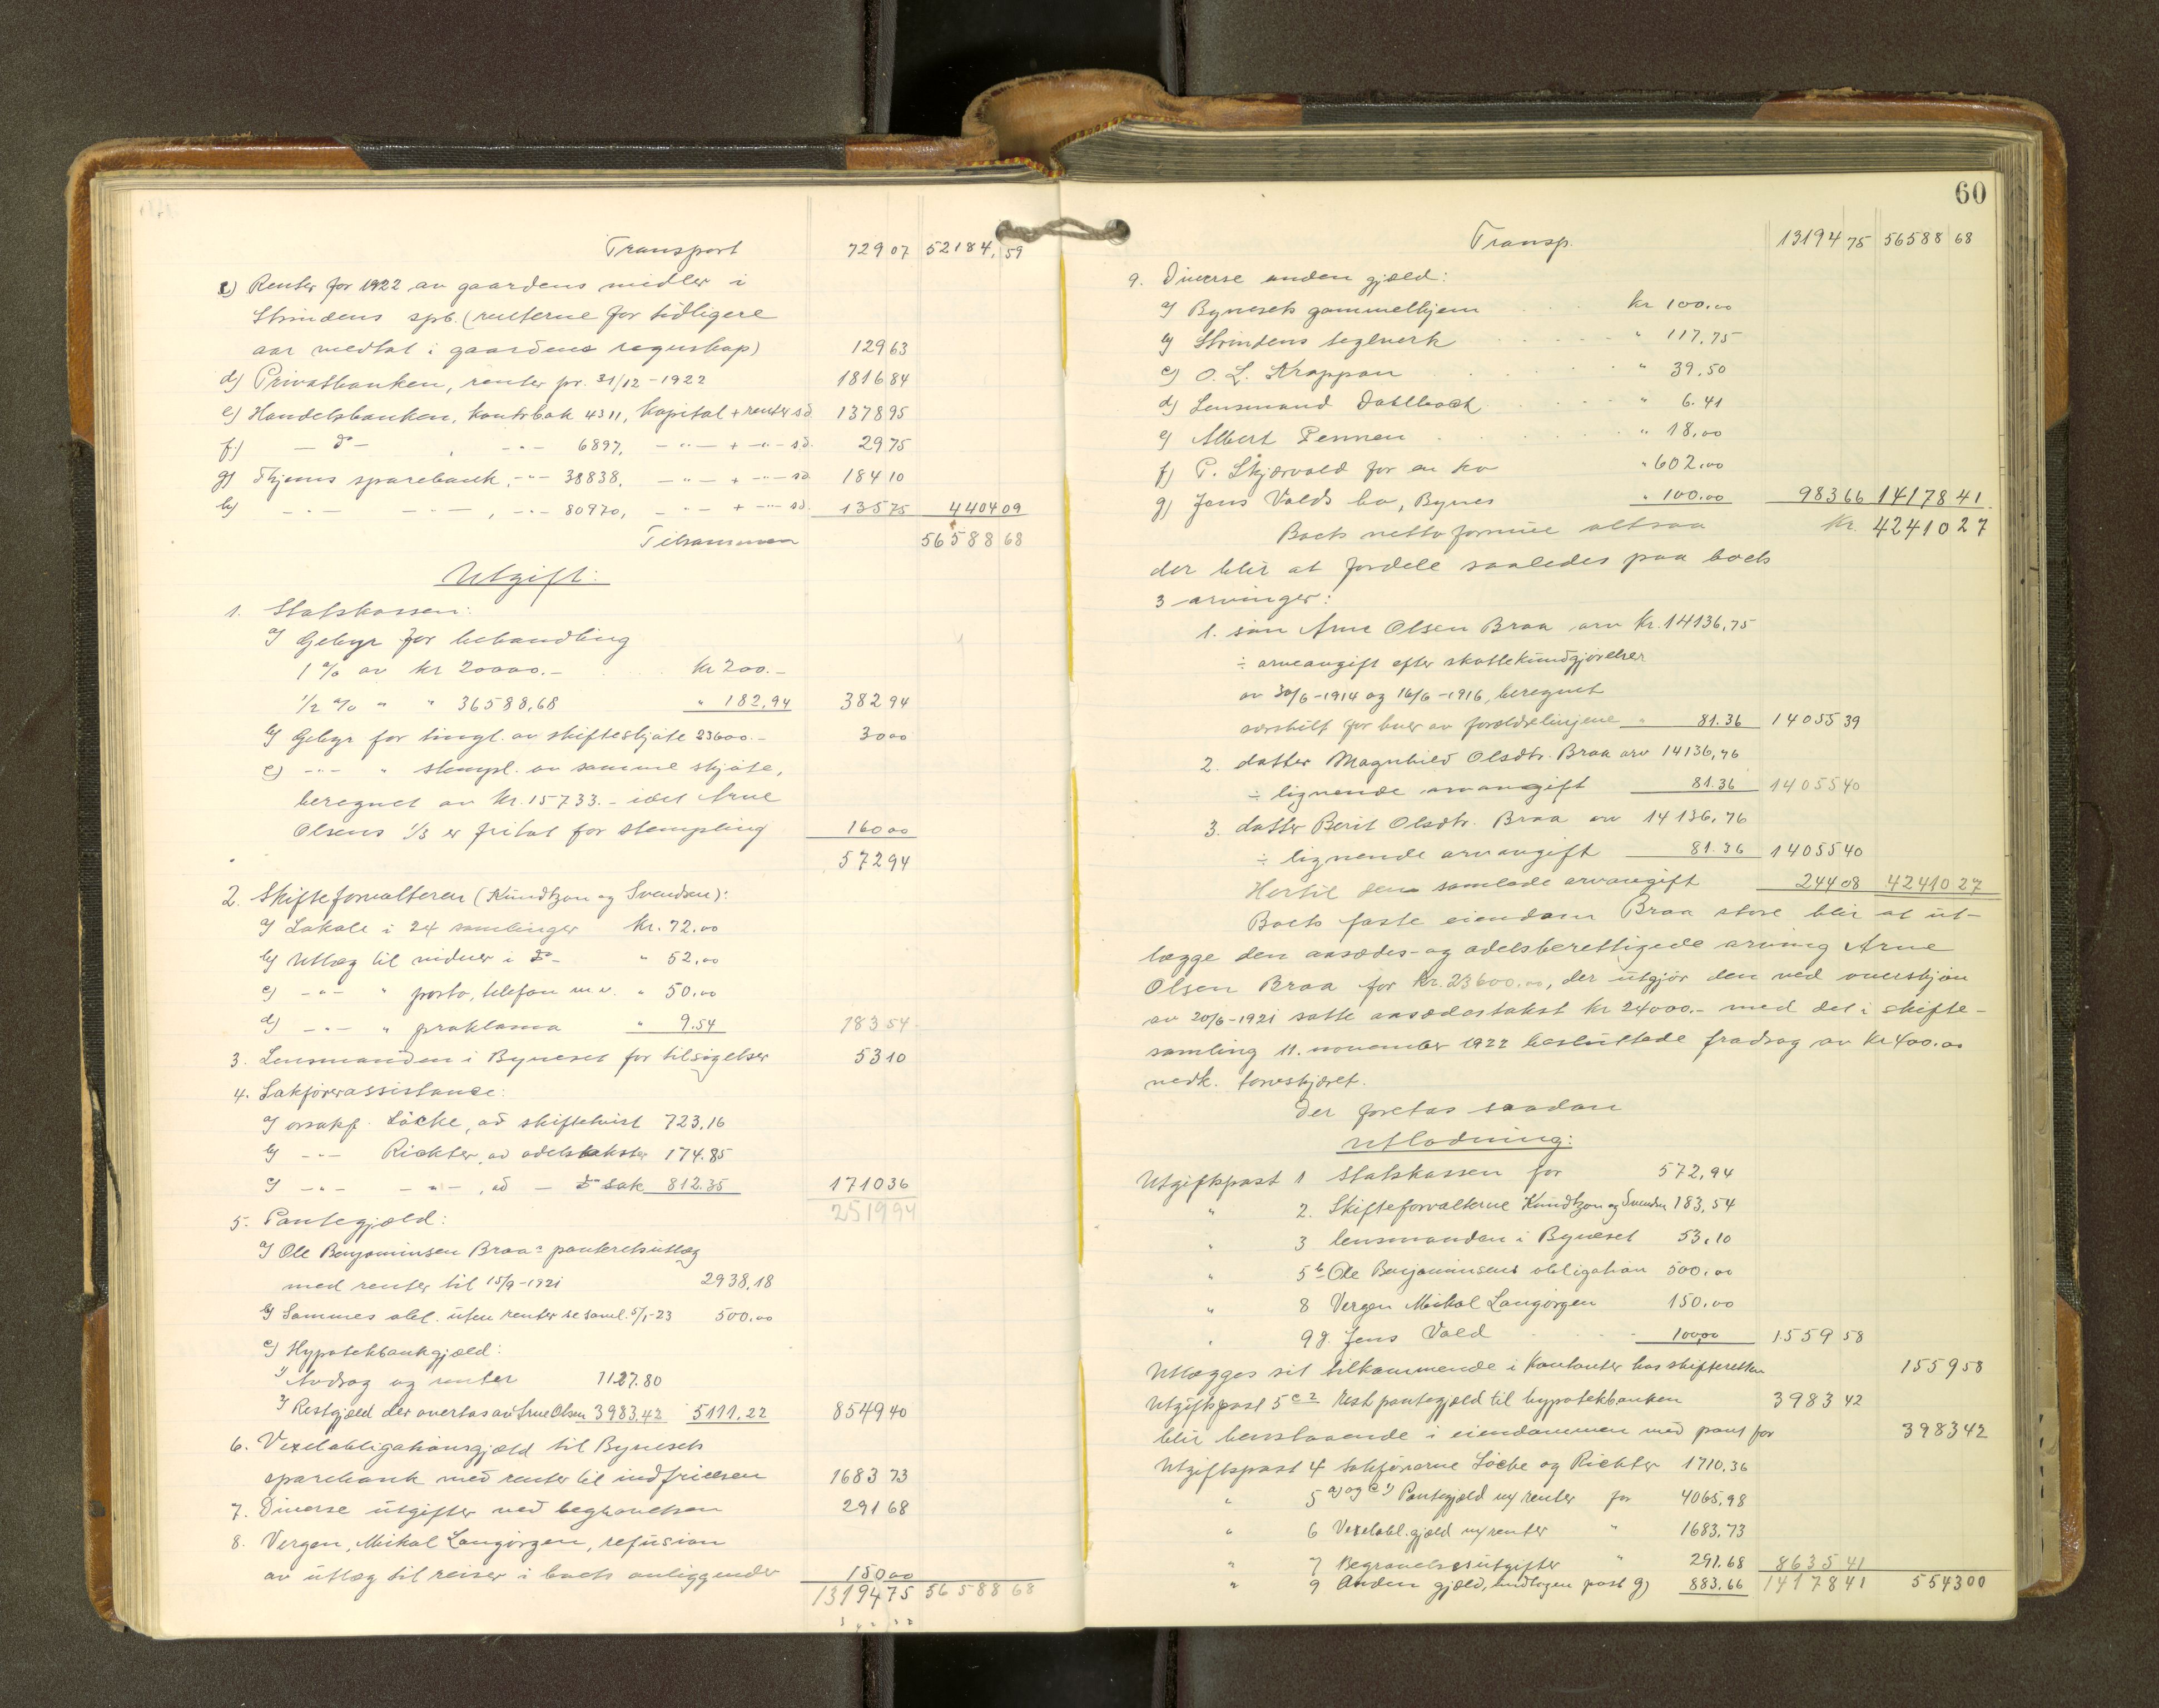 Transport 729 07 52184,59
c) Renter for 1922 av gaardens midler i
Strindens spb. (renterne for tidligere
aar medtat i gaardens regnskap) 129 63
d) Privatbanken, renter pr. 31/12-1922 1816 84
e) Handelsbanken, kontrbok 4311, kapital + renter sd 1378 95
f) — do — , -"- 6897, — " — + -"- sd. 29 75
g) Thjems sparebank, -"- 38838, — " — + -"- sd 184 10
h) -"- — " —, -"- 80970, — " — + -"- sd. 135 75 4404 09
Tilsammen 56588 68
Utgift:
1. Statskassen:
a) Gebyr for behandling
1 % av kr 20000.- kr 200.-
1/2 % " " 36588,68 " 182,94 382 94
b) Gebyr for tingl. av skifteskjøte 23600.- 30 00
c) -"- " stempl. av samme skjøte,
beregnet av kr. 15733.- idet Arne
Olsens 1/3 er fritat for stempling 160 00
572 94
2. Skifteforvalteren (Kundtzon og Svendsen):
a) Lokale i 24 samlinger kr. 72,00
b) Utlæg til vidner i do - " 52,00
c) -"- " porto, telefon m.v. " 50,00
d) -"- " proklama " 9.54 183 54
3. Lensmanden i Bynesset for tilsigelser 53 10
4. Sakførerassistance:
a) orsakf. Löcke, ad skiftetvist 723,16
b) -"- Richter, ad odelstakster 174.85
c) -"- -"-, ad — do sak 812.35 1710 36
2519 94
5. Pantegjæld:
a) Ole Benjaminsen Braas panteretsutlæg
med renter til 15/9-1921 2938,18
b) Sammes obl. uten renter se saml. 5/1-23 500,00
c) Hypotekbankgjæld:
1) Avdrag og renter 1127.80
2) Restgjæld der overtas av Arne Olsen 3983,42 5111,22 8549 40
6. Vexelobligationsgjæld til Bynesets
sparebank med renter til indfrielsen 1683 73
7. Diverse utgifter ved begravelsen 291 68
8. Vergen, Mikal Langørgen, refusion
av utlæg til reiser i boets anliggender 150 00
13194 75 56588 68
60
Transp. 13194 75 56588 68
9. Diverse anden gjæld:
a) Bynesets gammelhjem kr 100,00
b) Strindens teglverk " 117,75
c) O. L. Kroppan " 39.50
d) Lensmand Dahlback " 6.41
e) Albert Pennen " 18,00
f) P. Skjærvold for en ko " 602,00
g) Jens Valds bo, Bynes " 100.00 983 66 14178 41
Boets netto formue altsaa kr. 42410 27
der blir at fordele saaledes paa boets
3 arvinger:
1. søn Arne Olsen Braa arv kr. 14136,75
÷ arveavgift efter skattekundgjørelser
av 30/6-1914 og 16/6-1916, beregnet
særskilt for hver av forældrelinjene " 81.36 14055 39
2. datter Magnhild Olsdtr. Braa arv 14136,76
÷ lignende arvavgift 81.36 14055 40
3. datter Berit Olsdtr. Braa arv 14136,76
÷ lignende arvavgift 81.36 14055 40
Hertil den samlede arvavgift 244 08 42410 27
Boets faste eiendom Braa store blir at ut-
lægge den aasædes- og odelsberettigede arving Arne
Olsen Braa for kr. 23600.00, der utgjør den ved overskjøn
av 20/6-1921 satte aasædestakst kr 24000.- med det i skifte-
samling 11. november 1922 besluttede fradrag av kr 400.00
vedk. torvskjæret.
Der foretas saadan
utlodning:
Utgiftspost 1 Statskassen for 572,94
" 2. Skifteforvalterne Kundtzon og Svendsen 183,54
" 3 lensmanden i Byneset 53,10
" 5b Ole Benjaminsens obligation 500,00
" 8 Vergen Mikal Langørgen 150,00
" 9g. Jens Vald 100,00 1559 58
Utlægges sit tilkommende i kontanter hos skifteretten 1559 58
Utgiftspost 5c2 Rest pantegjæld til hypotekbanken 3983 42
blir henstaaende i eiendommen med pant for 3983 42
Utgiftspost 4 Sakførerne Löcke og Richter 1710,36
" 5 a) og c1) Pantegjæld m/ renter for 4065,98
" 6 Vexelobl.gjæld m/ renter " 1683,73
" 7 Begravelsesutgifter " 291,68 8635 41
" 9 Anden gjæld, undtagen post g) 883.66 14178 41 5543 00